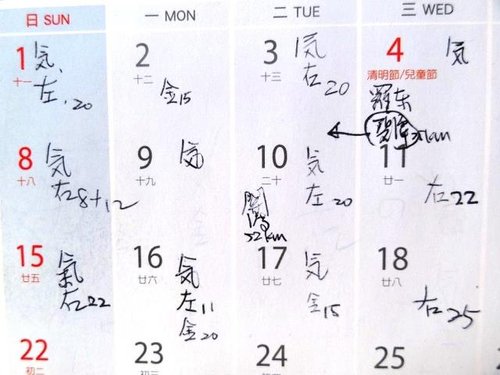 日 SUN
一 MON
二 TUE
三 WED
1
十一
気
左 20
2
十二
金15
3
十三
気
右
20
4
清明節/兒童節
気
羅东
8
十八
気
右8+12
9
十九
気
10
二十
気
左 20
32km
11
廿一
右22
15
廿五
氣
右22
16
廿六
気
左11
金20
17
廿七
気
金15
18
廿八
右25
22
初二
23
初三
24
25